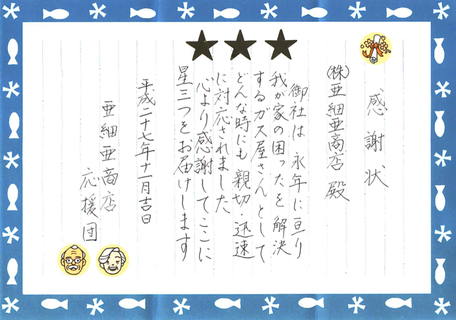 感謝状
㈱亜細亜商店殿
御社は永年に亘り
我が家の困ったを解決
するガス屋さんとして
どんな時にも親切・迅速
に対応されました
心より感謝してここに
星三つをお届けします
平成二十七年十一月吉日
亜細亜商店
応援団